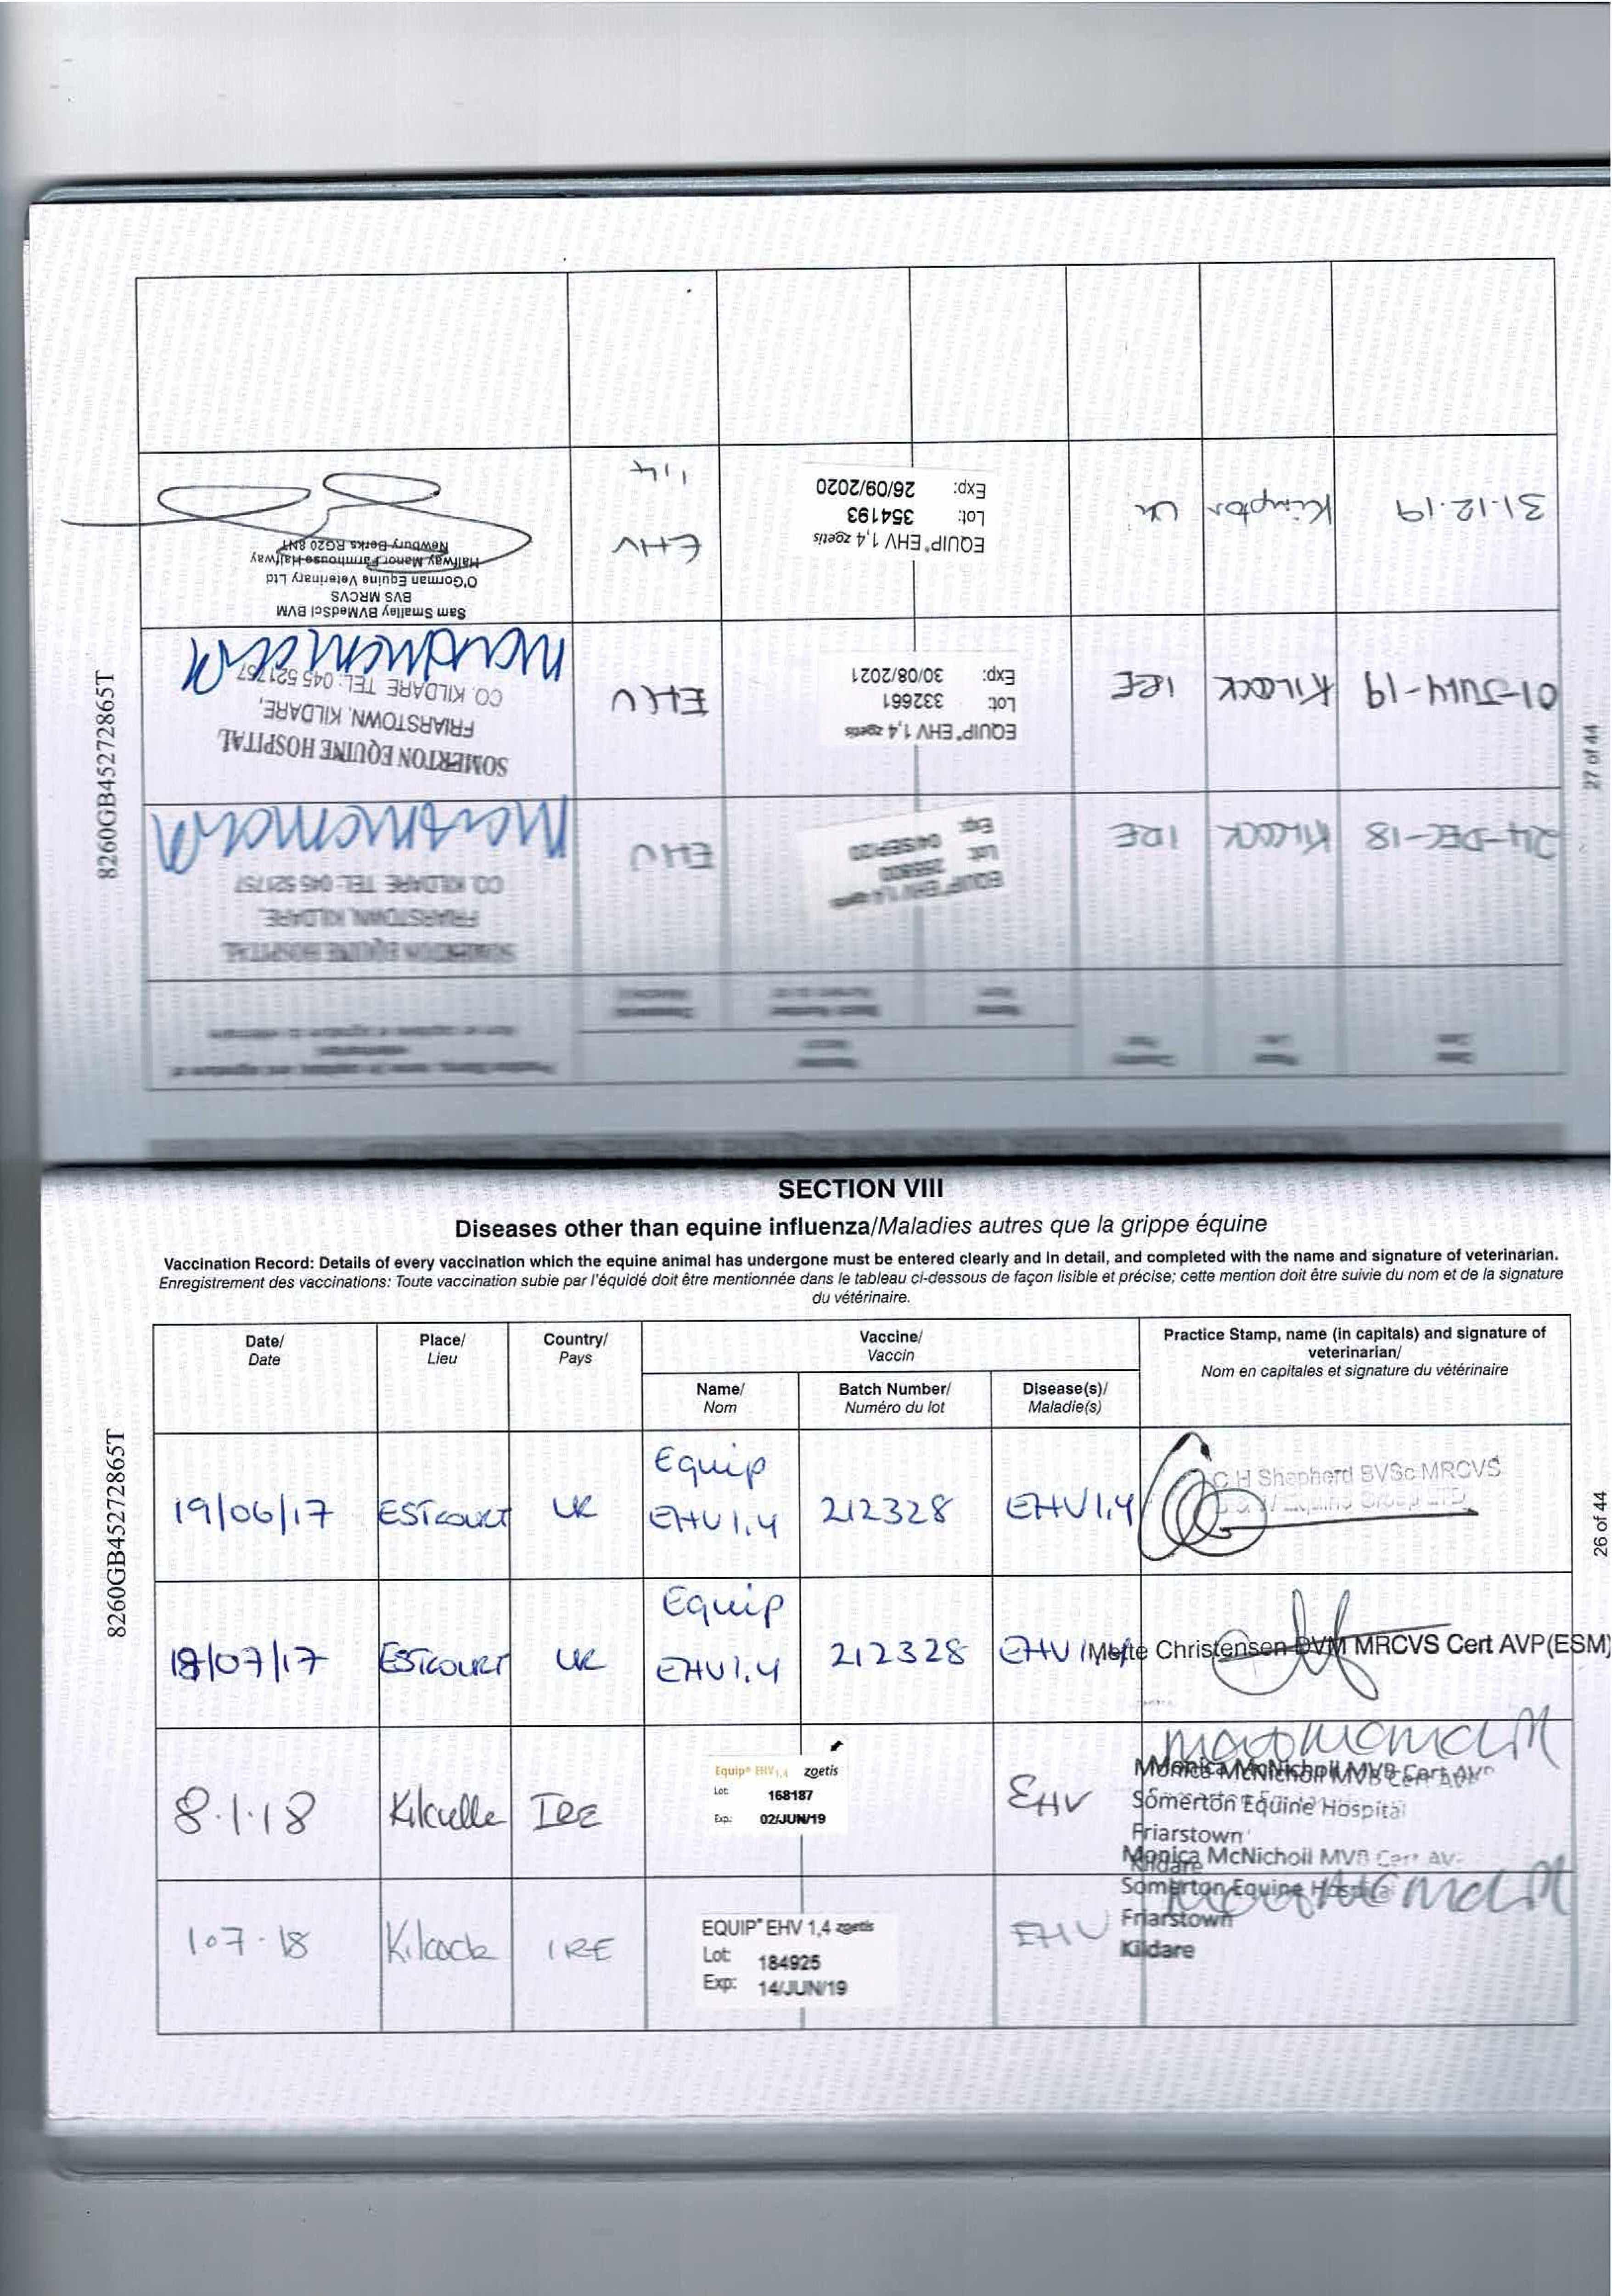 SECTION VIII
Diseases other than equine influenza/Maladies autres que la grippe équine
Vaccination Record: Details of every vaccination which the equine animal has undergone must be entered clearly and in detail, and completed with the name and signature of veterinarian.
Enregistrement des vaccinations: Toute vaccination subie par l'équidé doit être mentionnée dans le tableau ci-dessous de façon lisible et précise; cette mention doit être suivie du nom et de la signature
du vétérinaire.
Date/
Date
Place/
Lieu
Country/
Pays
Vaccine/
Vaccin
Name/
Nom
Batch Number/
Numéro du lot
Disease(s)/
Maladie(s)
Practice Stamp, name (in capitals) and signature of
veterinarian/
Nom en capitales et signature du vétérinaire
19/06/17
ESTCOURT
UK
Equip
EHV 1,4
212328
EHV1,4
C H Shepherd BVSc MRCVS
18/07/17
ESTCOURT
UK
Equip
EHV1,4
212328
EHV 1,4
Mette Christensen BVM MRCVS Cert AVP(ESM)
8.1.18
Kilculle
IRE
Equip® EHV 1,4 zoetis
Lot: 168187
Exp: 02/JUN/19
EHV
Monica McNicholl MVB Cert AVP
Somerton Equine Hospital
Friarstown
Kildare
1.07.18
Kilcock
IRE
EQUIP® EHV 1,4 zoetis
Lot: 184925
Exp: 14/JUN/19
EHV
Monica McNicholl MVB Cert AV
Somerton Equine Hospital
Friarstown
Kildare
8260GB45272865T
26 of 44
24-DEC-18
KILCOCK
IRE
EQUIP® EHV 1,4 zoetis
Lot:
Exp: 04/SEP/20
EHV
SOMERTON EQUINE HOSPITAL
FRIARSTOWN, KILDARE,
CO. KILDARE TEL: 045 521757
01-JULY-19
KILCOCK
IRE
EQUIP® EHV 1,4 zoetis
Lot: 332661
Exp: 30/08/2021
EHV
SOMERTON EQUINE HOSPITAL
FRIARSTOWN, KILDARE,
CO. KILDARE TEL: 045 521757
31.12.19
Kimpton
UK
EQUIP® EHV 1,4 zoetis
Lot: 354193
Exp: 26/09/2020
EHV
1,4
Sam Smalley BVMedSci BVM
BVS MRCVS
O'Gorman Equine Veterinary Ltd
Halfway Manor Farmhouse Halfway
Newbury Berks RG20 8NT
8260GB45272865T
27 of 44